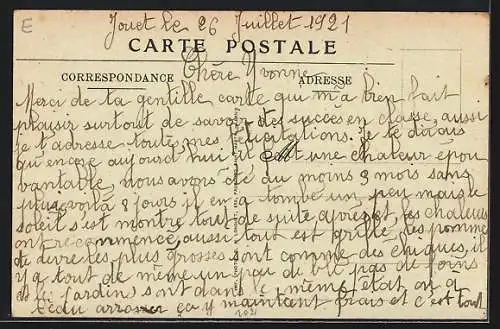 E
Jouet le 26 Juillet 1921
CARTE POSTALE
Chère Yvonne
CORRESPONDANCE
ADRESSE
Merci de ta gentille carte qui m'a bien fait
plaisir surtout de savoir tes succès en classe, aussi
je t'adresse toutes mes félicitations. Je te dirais
qu'encore aujourd'hui il fait une chaleur épou
vantable, nous avons été au moins 3 mois sans
pluie voilà 8 jours il en a tombé un peu mais le
soleil s'est montré tout de suite après et les chaleurs
ont recommencé, aussi tout est grillé les pommes
de terre les plus grosses sont comme des chiques, il
y a tout de même un peu de blé pas de foins
et les jardins sont dans le même état on a
beau arroser ça y maintient frais et c'est tout
1021